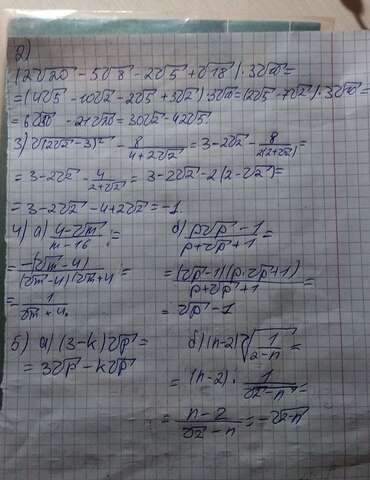 2)
(2√20 - 5√8 - 2√5 + √18) · 3√10 =
= (4√5 - 10√2 - 2√5 + 3√2) · 3√10 = (2√5 - 7√2) · 3√10 =
= 6√50 - 21√20 = 30√2 - 42√5
3) √(2√2 - 3)² - 8/(4+2√2) = 3 - 2√2 - 8/(2(2+√2)) =
= 3 - 2√2 - 4/(2+√2) = 3 - 2√2 - 2(2 - √2) =
= 3 - 2√2 - 4 + 2√2 = -1.
4) а) (4 - √m)/(m - 16) =
= -(√m - 4)/((√m - 4)(√m + 4)) =
= 1/(√m + 4).
б) (p√p - 1)/(p + √p + 1) =
= (√p - 1)(p + √p + 1)/(p + √p + 1) =
= √p - 1
5) а) (3 - k)√p =
= 3√p - k√p
б) (n - 2)√(1/(2 - n)) =
= (n - 2) · 1/√(2 - n) =
= (n - 2)/(√2 - n) = -√(2 - n)